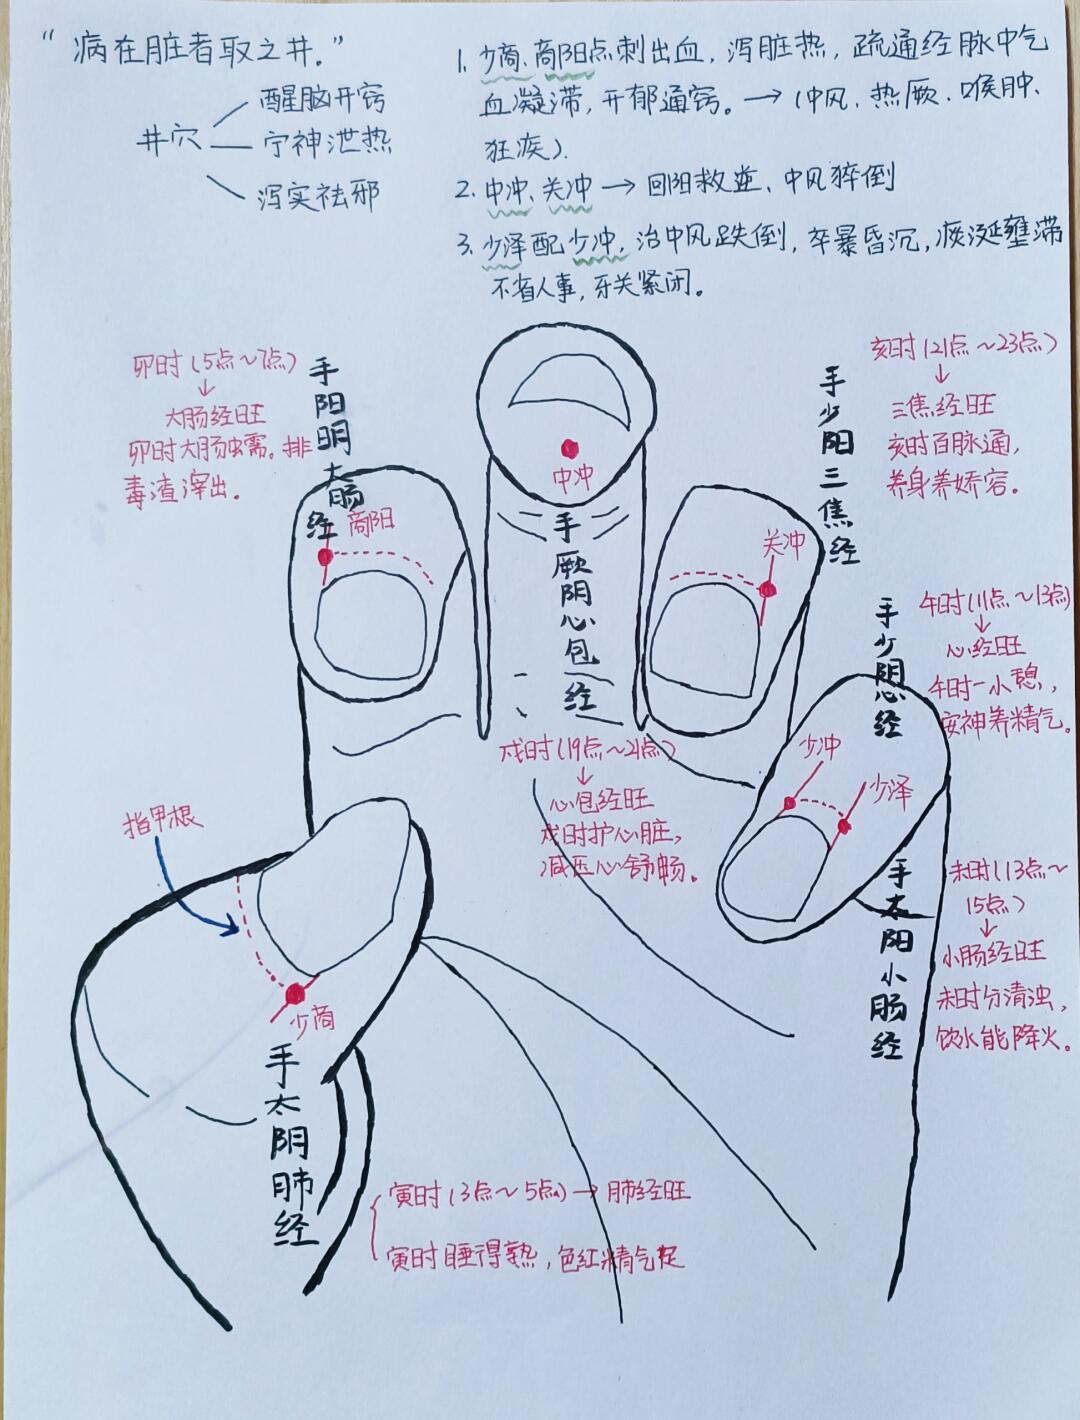 “病在脏者取之井.”
井穴
醒脑开窍
宁神泄热
泻实祛邪
1. 少商、商阳点刺出血，泻脏热，疏通经脉中气
血凝滞，开郁通窍。→（中风、热厥、喉肿、
狂疾）.
2. 中冲、关冲→回阳救逆、中风猝倒
3. 少泽配少冲，治中风跌倒，卒暴昏沉，痰涎壅滞
不省人事，牙关紧闭。
卯时（5点～7点）
↓
大肠经旺
卯时大肠蠕。排
毒渣滓出.
手阳明大肠经
商阳
中冲
手厥阴心包经
戌时（19点～21点）
↓
心包经旺
戌时护心脏，
减压心舒畅。
亥时（21点～23点）
↓
三焦经旺
亥时百脉通，
养身养娇容。
手少阳三焦经
关冲
午时（11点～13点）
↓
心经旺
午时一小憩，
安神养精气。
手少阴心经
少冲
少泽
手太阳小肠经
未时（13点～
15点）
↓
小肠经旺
未时分清浊，
饮水能降火。
指甲根
少商
手太阴肺经
寅时（3点～5点）→肺经旺
寅时睡得熟，色红精气足